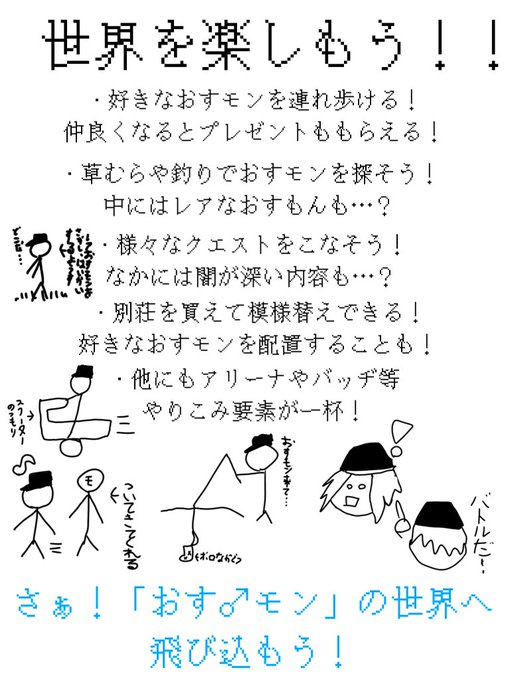 世界を楽しもう！！
・好きなおすモンを連れ歩ける！
仲良くなるとプレゼントももらえる！
・草むらや釣りでおすモンを探そう！
中にはレアなおすもんも…？
・様々なクエストをこなそう！
なかには闇が深い内容も…？
・別荘を買えて模様替えできる！
好きなおすモンを配置することも！
・他にもアリーナやバッヂ等
やりこみ要素が一杯！
スクーター
のつもり
モ
ついてきてくれる
おすモン来て…
バトルだー！
さぁ！「おす♂モン」の世界へ
飛び込もう！